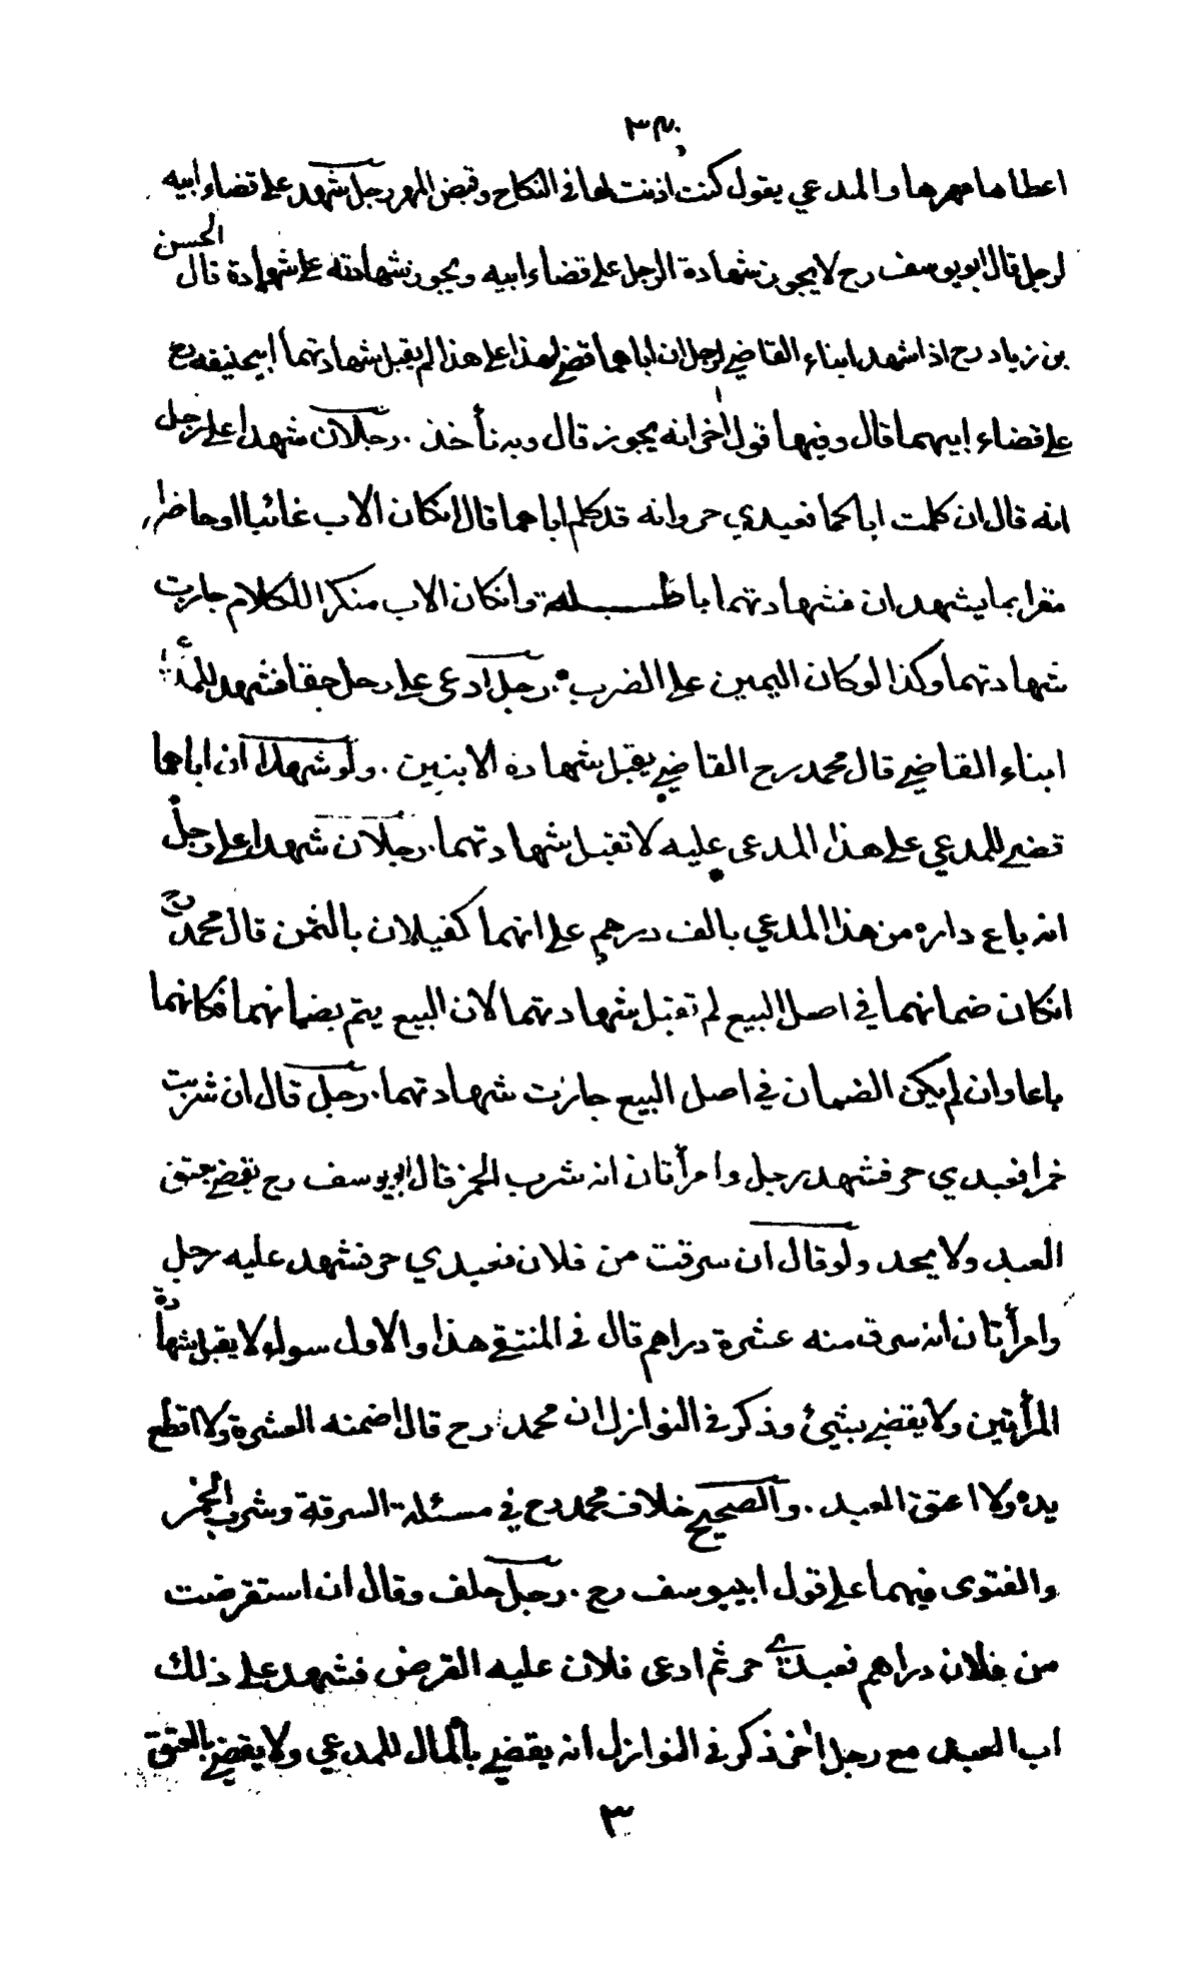 اعطاها مهرها والمدعي يقول كنت اذنت لها في النكاح وقبض المهر رجل شهد على قضاء ابيه
لرجل قال ابويوسف رح لا يجوز شهادة الرجل على قضاء ابيه ويجوز شهادته على شهادة قال الحسن
بن زياد رح اذا شهد ابناء القاضي لرجل ان اباهما قضى لهذا على هذا لم يقبل شهادتهما ابيحنيفه رح
على قضاء ابيهما قال وفيها قول اخر انه يجوز قال وبه نأخذ . رجلان شهدا على رجل
انه قال ان كلمت اباكما فعبدي حر وانه قد كلم اباهما قال انكان الاب غائبا او حاضرا
مقرا بما يشهدان فشهادتهما باطلة وانكان الاب منكرا للكلام جازت
شهادتهما وكذا لو كان اليمين على الضرب . رجل ادعى على رجل حقا فشهد للمدعي
ابناء القاضي قال محمد رح القاضي يقبل شهادة الابنين . ولو شهدا ان اباهما
قضى للمدعي على هذا المدعى عليه لا تقبل شهادتهما . رجلان شهدا على رجل
انه باع داره من هذا المدعي بالف درهم على انهما كفيلان بالثمن قال محمد رح
انكان ضمانهما في اصل البيع لم تقبل شهادتهما لان البيع يتم بضمانهما فكانهما
باعا وان لم يكن الضمان في اصل البيع جازت شهادتهما . رجل قال ان شربت
خمرا فعبدي حر فشهد رجل وامرأتان انه شرب الخمر قال ابويوسف رح يقضى بعتق
العبد ولا يحد ولو قال ان سرقت من فلان فعبدي حر فشهد عليه رجل
وامرأتان انه سرق منه عشرة دراهم قال في المنتقى هذا والاول سواء ولا يقبل شهادة
المرأتين ولا يقضى بشئ وذكر في النوازل ان محمد رح قال اضمنه العشرة ولا اقطع
يده ولا اعتق العبد . والصحيح خلاف محمد رح في مسئلة السرقة وشرب الخمر
والفتوى فيهما على قول ابيوسف رح . رجل حلف وقال ان استقرضت
من فلان دراهم فعبدي حر ثم ادعى فلان عليه القرض فشهد على ذلك
اب العبد مع رجل اخر ذكر في النوازل انه يقضي بالمال للمدعي ولا يقضي بالعتق
٣